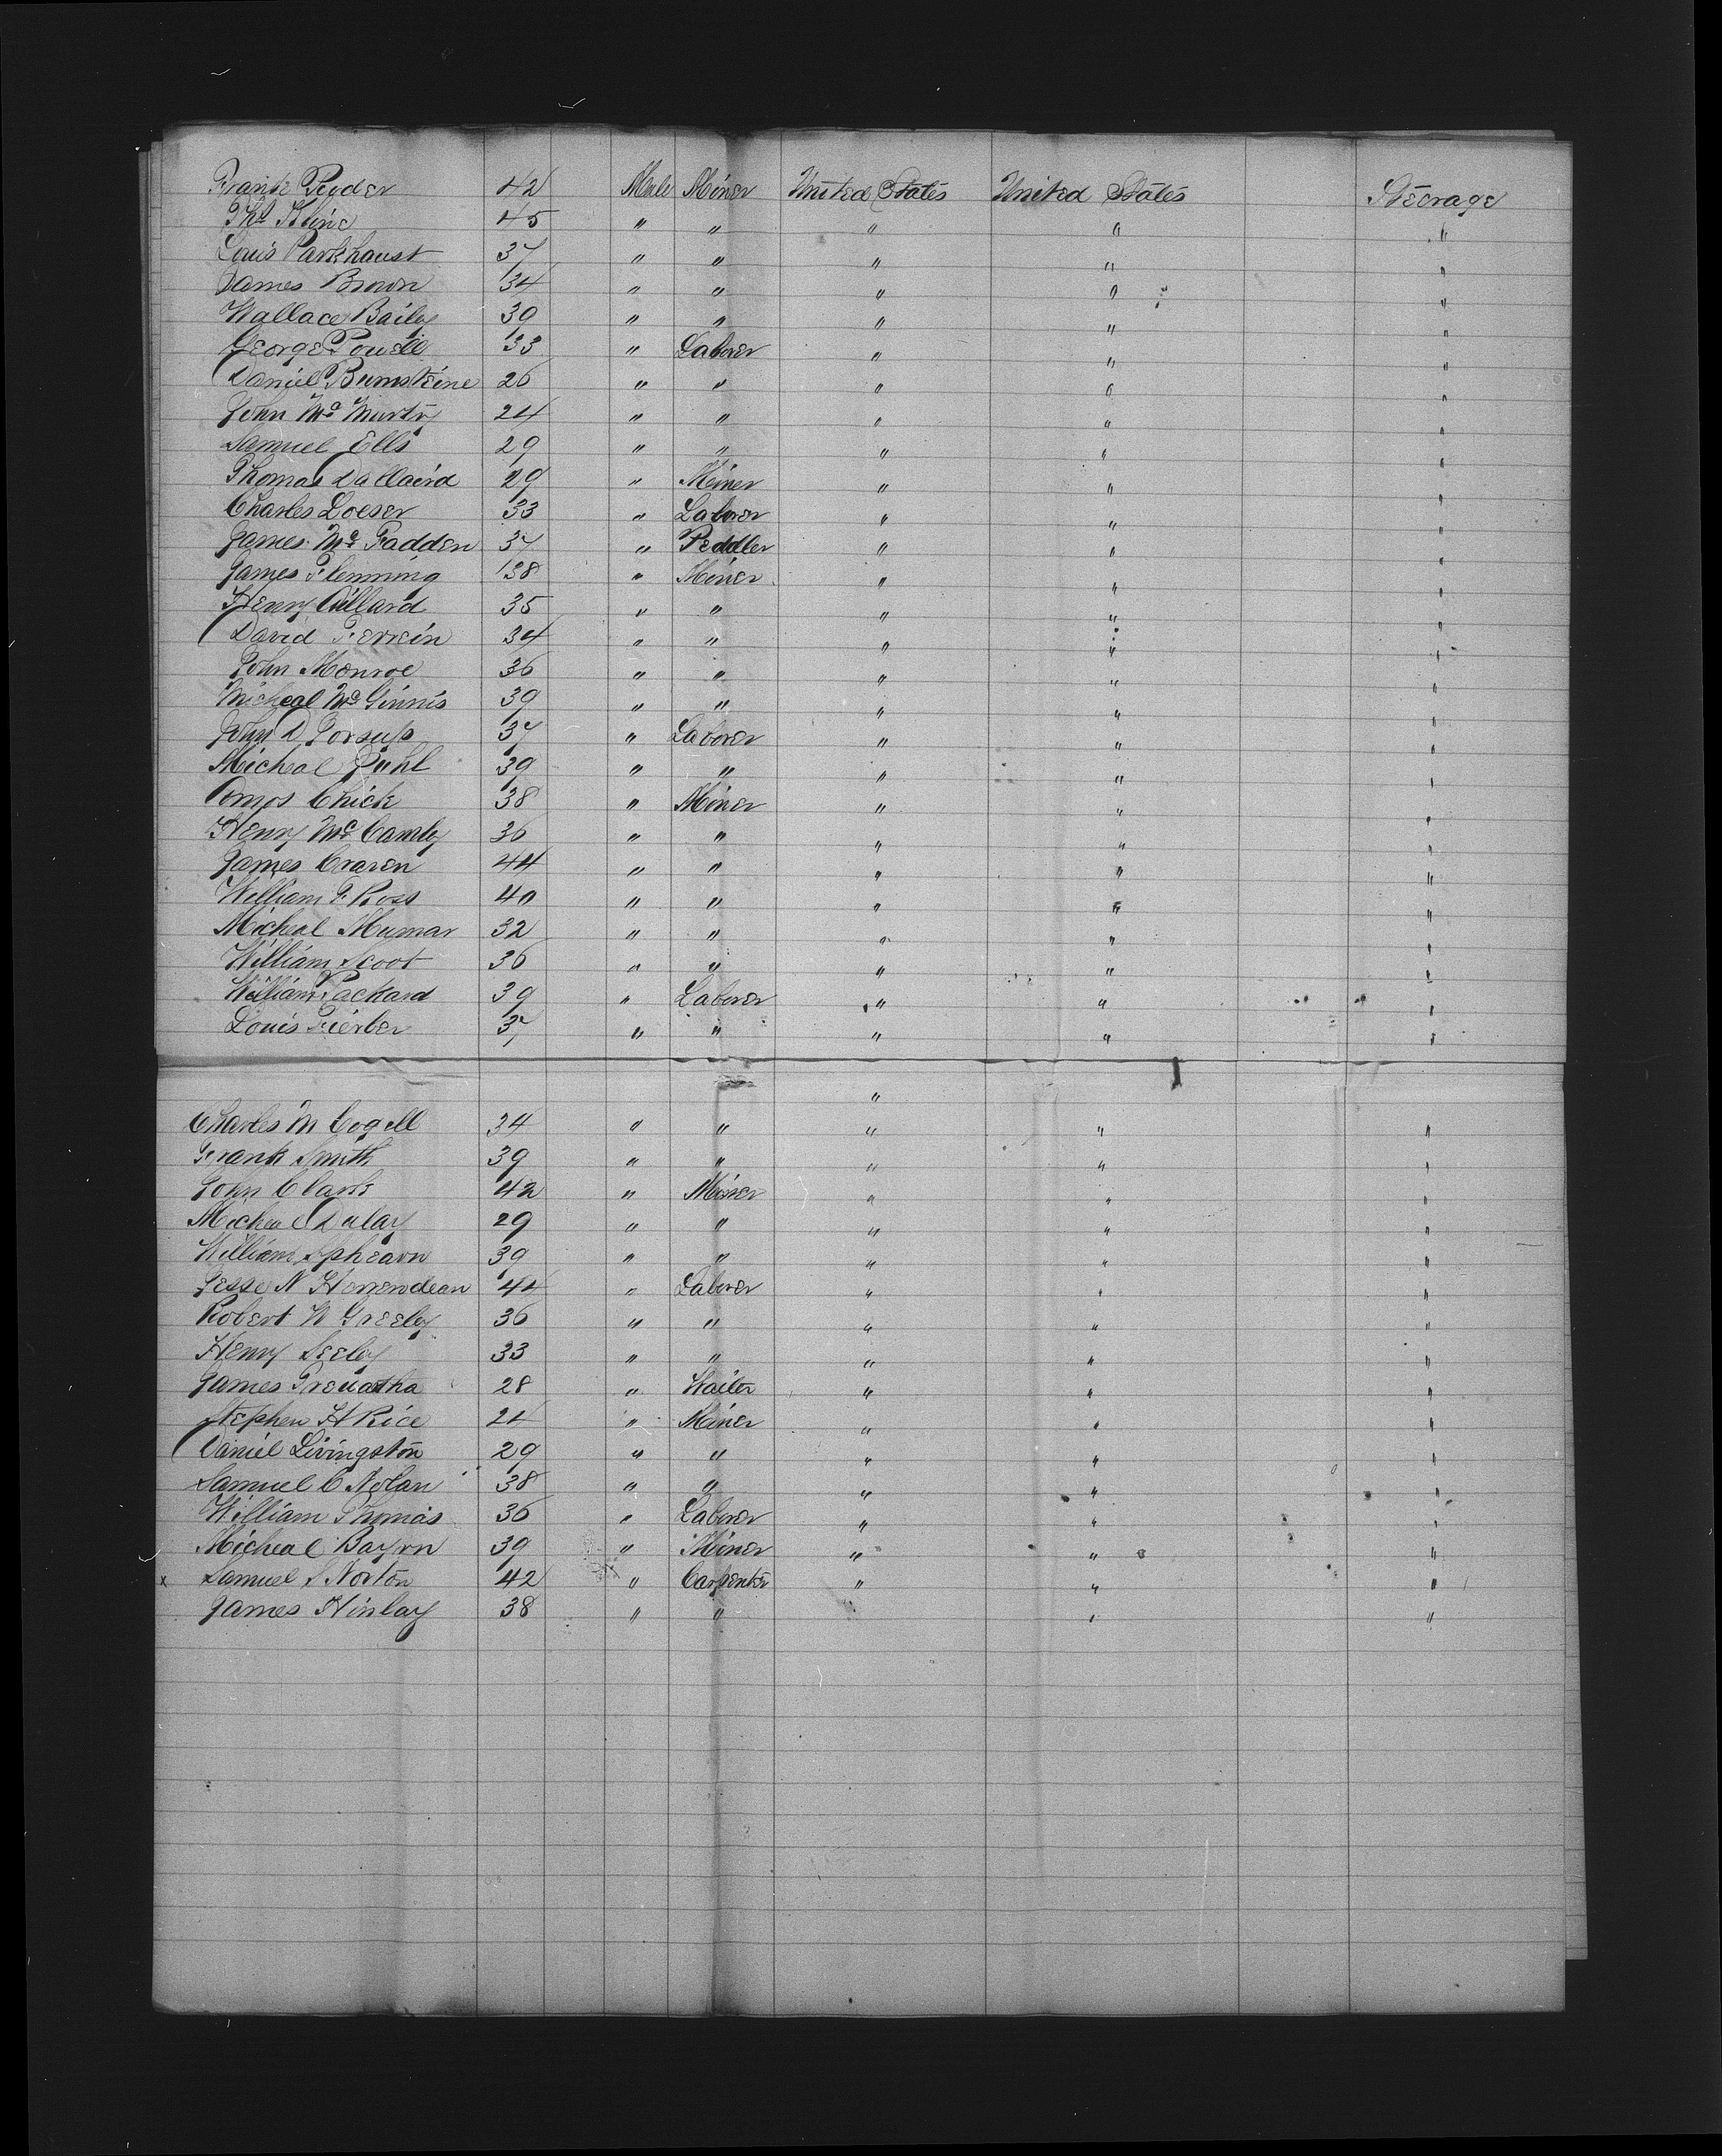 Frank Ryder 42 Male Miner United States United States Steerage
Thos Kline 45 " " " " "
Louis Parkhaust 37 " " " " "
James Brown 34 " " " " "
Wallace Baily 39 " " " " "
George Powell 33 " Laborer " " "
Daniel Bumsteine 26 " " " " "
John Mc Murtry 24 " " " " "
Samuel Ells 29 " " " " "
Thomas Dallaird 29 " Miner " " "
Charles Loeser 33 " Laborer " " "
James Mc Fadden 37 " Peddler " " "
James Flemming 38 " Miner " " "
Henry Cillard 35 " " " " "
David Ferrein 34 " " " " "
John Monroe 36 " " " " "
Micheal Mc Ginnis 39 " " " " "
John D 37 " Laborer " " "
Micheal Puhl 39 " " " " "
Amos Chick 38 " Miner " " "
Henry Mc Camly 36 " " " " "
James Craven 44 " " " " "
William F Ross 40 " " " " "
Micheal Mumar 32 " " " " "
William Scoot 36 " " " " "
William Packard 39 " Laborer " " "
Louis Fierber 37 " " " " "
"
Charles M Cogell 34 " " " " "
Frank Smith 39 " " " " "
John Clark 42 " Miner " " "
Micheal Dulay 29 " " " " "
William Sphearn 39 " " " " "
Jesse N Herrendean 44 " Laborer " " "
Robert W Greely 36 " " " " "
Henry Seely 33 " " " " "
James 28 " Waiter " " "
Stephen H Rice 24 " Miner " " "
Daniel Livingston 29 " " " " "
Samuel C Nolan 38 " " " " "
William Thomas 36 " Laborer " " "
Micheal Bayrn 39 " Miner " " "
x Samuel S Norton 42 " Carpenter " " "
James Hinlay 38 " " " " "